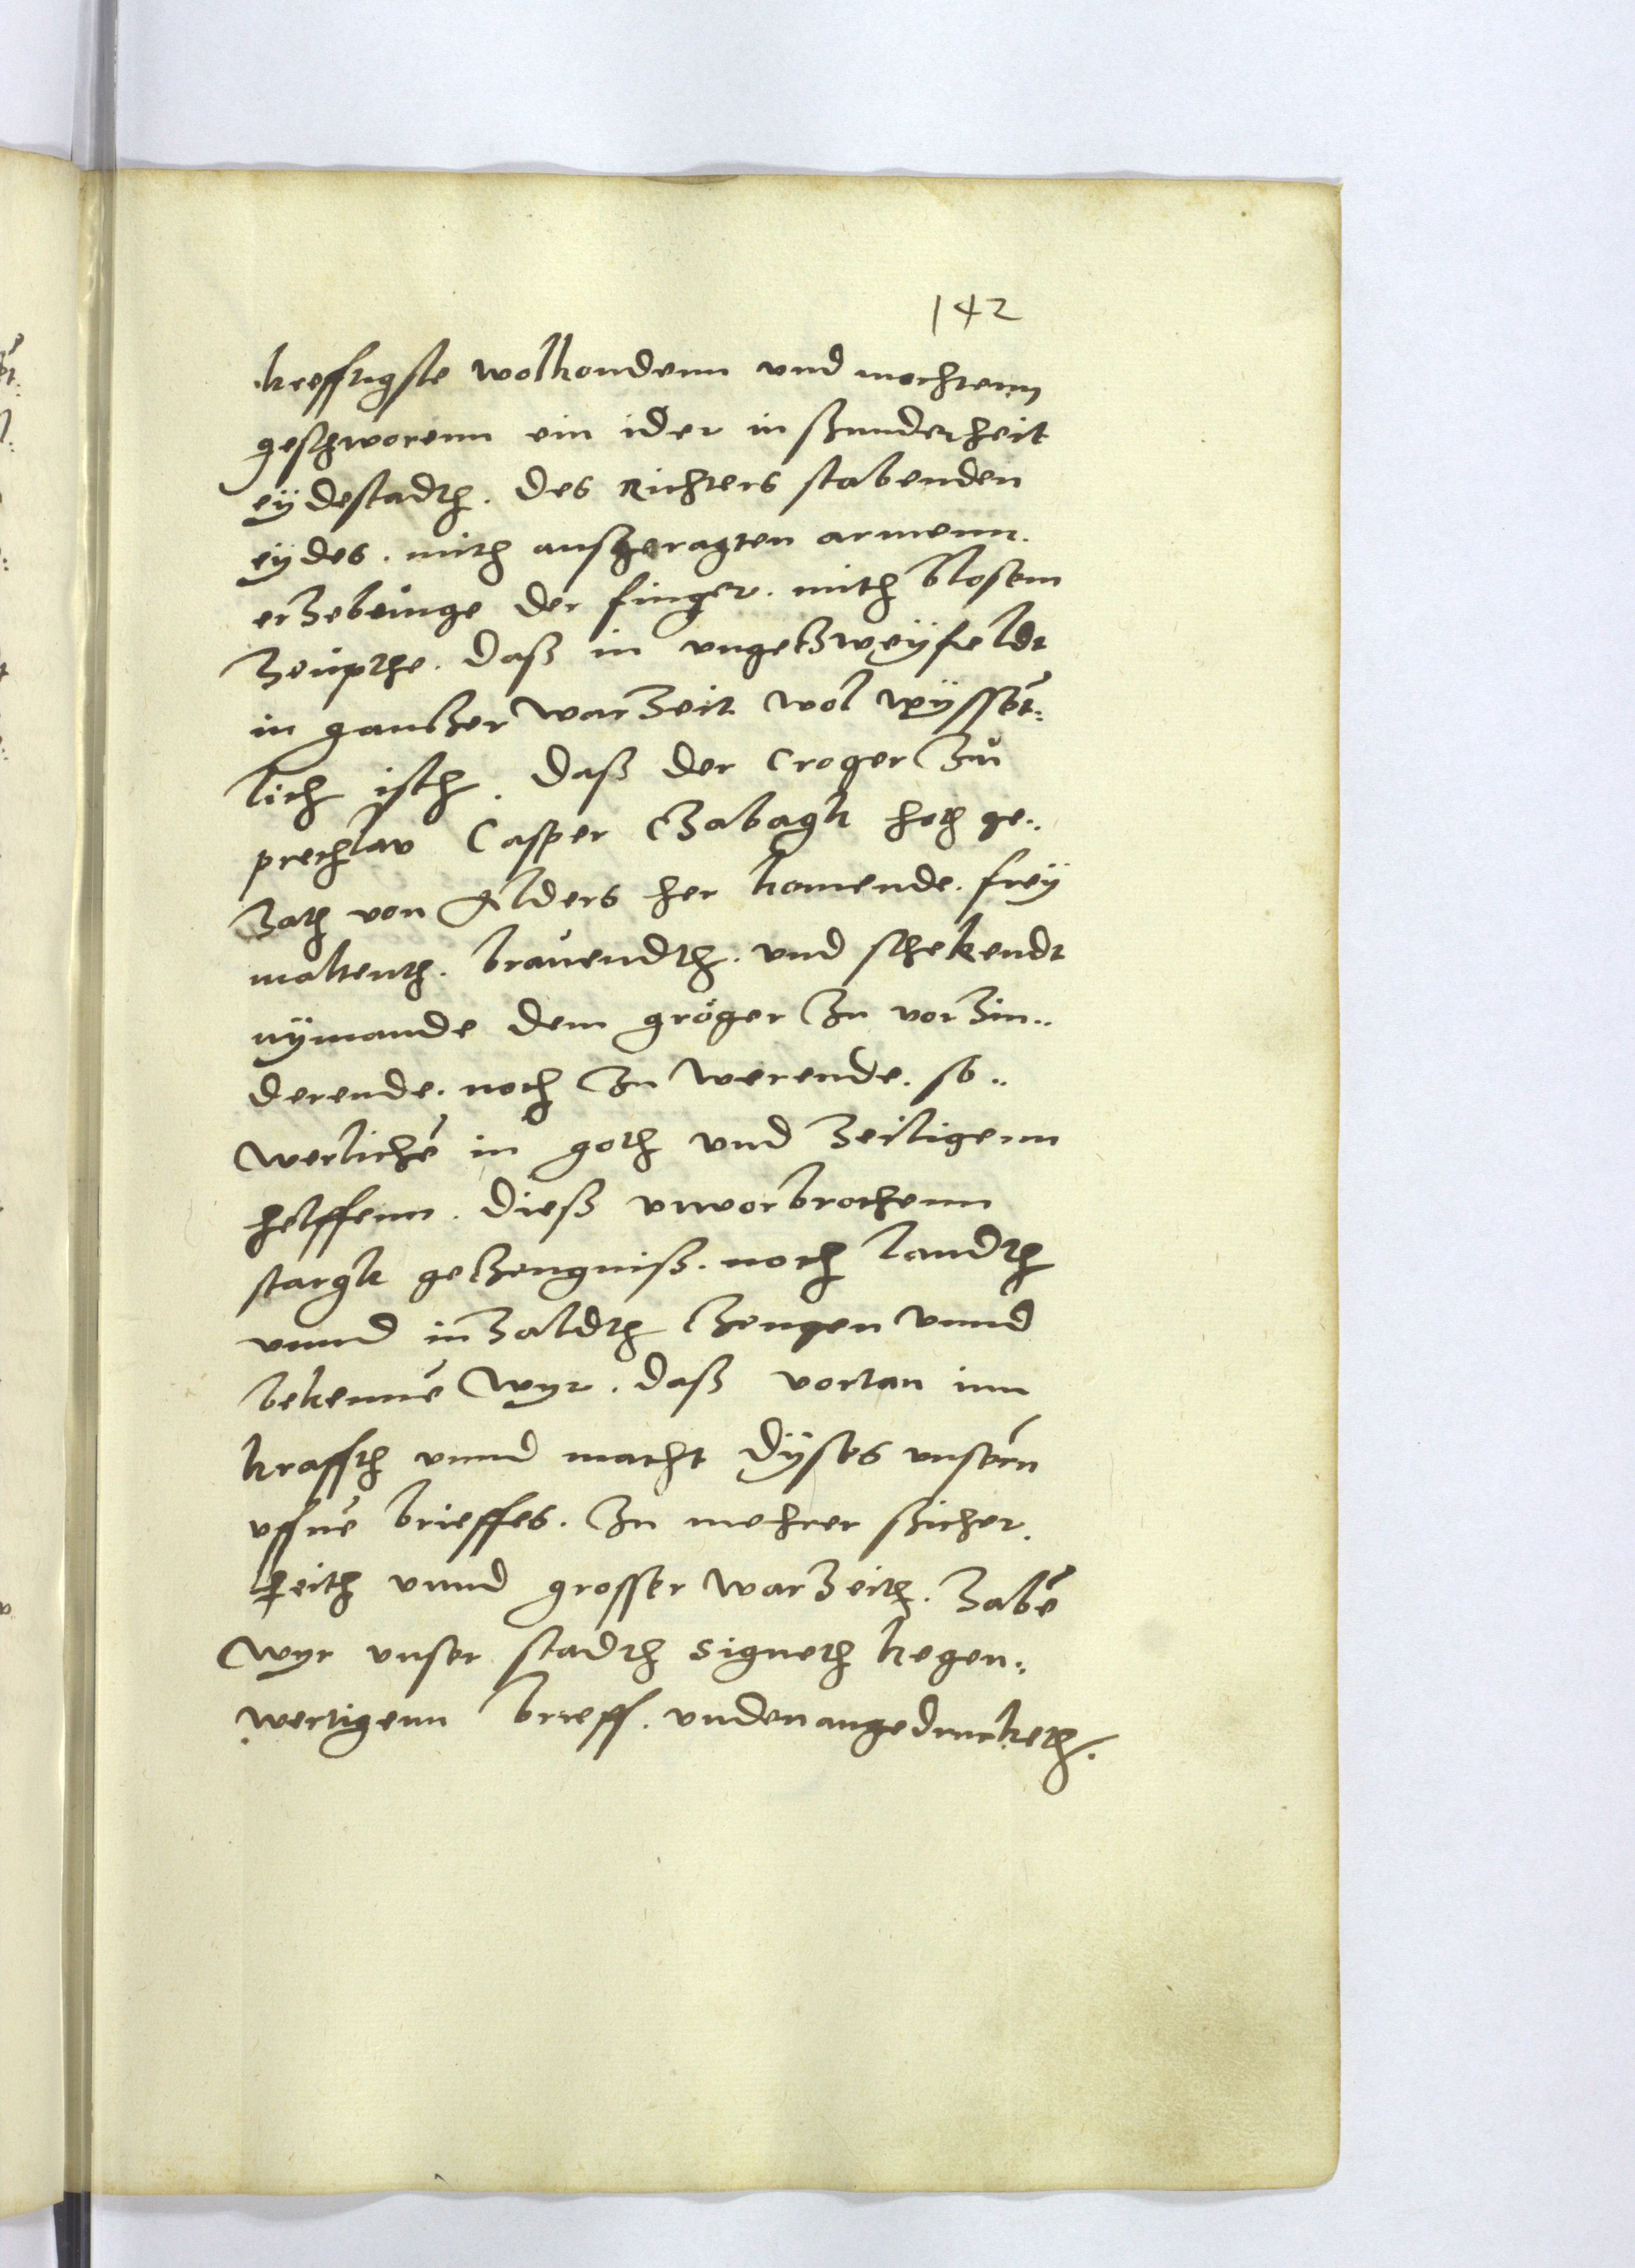 142
kreffugste wolkondenn vnd mochtenn
geschworenn ein ider in sunderheit
eydestadth. des Richters stabenden
eydes. mith außgeragten armenn.
erhebunge der finger. mith blosem
heupthe. daß in vngetzweyfeldt
in gantzer warheit wol wyssēt:
lich isth. daß der Croger zw
prechlav Casper Czabagk hoth ge..
hath von Alders her komende. frey
maltenth. brauendth. vnd schekendt
nymande dem gröger zu vorhin..
derende. noch zu werende. so..
werlichē in goth vnd heiligenn
helffenn. dieß vnvorbrochenn
stargk getzeugniß. noch landth
vnnd inhaldth tzeugen vnnd
bekennē wyr. daß vortan inn
kraffth vnnd macht dyses vnsern
vffnē brieffes. zu mehrer sicher.
heith vnnd grosser warheith. habē
wyr vnser stadth Signeth kegen:
wertigenn brieff. vnden angedrucketh.